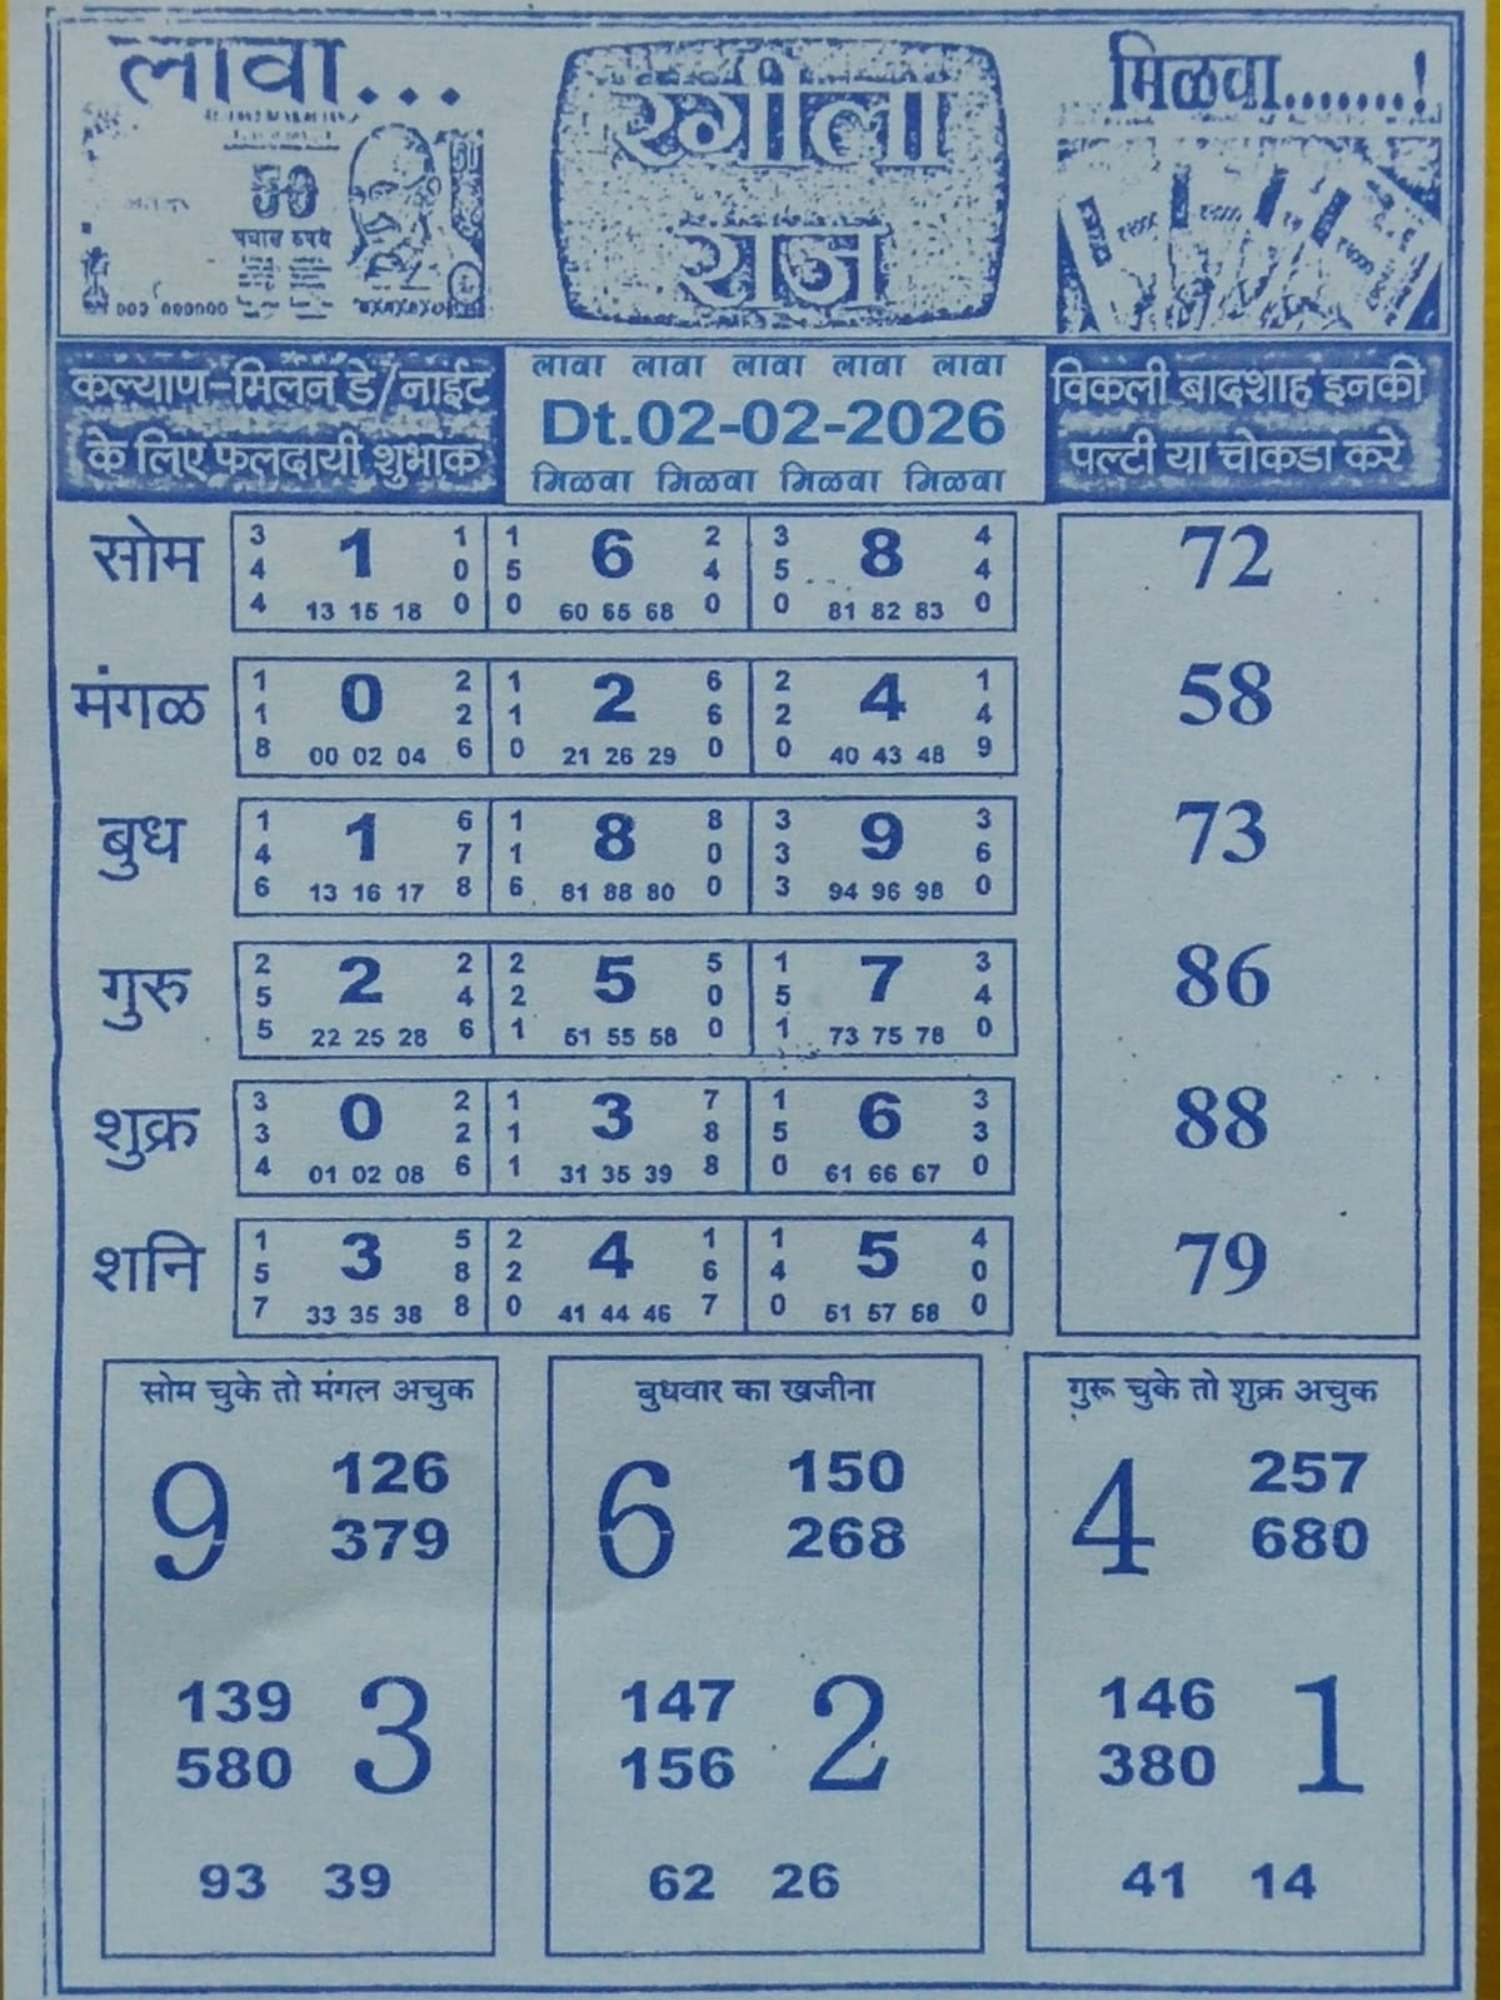 लावा...
रंगीला
राज
मिळवा.......!
50
पचास रुपये
कल्याण-मिलन डे/नाईट
के लिए फलदायी शुभांक
लावा लावा लावा लावा लावा
Dt.02-02-2026
मिळवा मिळवा मिळवा मिळवा
विकली बादशाह इनकी
पल्टी या चोकडा करे
सोम 3 1 1 1 6 2 3 8 4 72
4 0 5 4 5 4
4 13 15 18 0 0 60 65 68 0 0 81 82 83 0
मंगळ 1 0 2 1 2 6 2 4 1 58
1 2 1 6 2 4
8 00 02 04 6 0 21 26 29 0 0 40 43 48 9
बुध 1 1 6 1 8 8 3 9 3 73
4 7 1 0 3 6
6 13 16 17 8 6 81 88 80 0 3 94 96 98 0
गुरु 2 2 2 2 5 5 1 7 3 86
5 4 2 0 5 4
5 22 25 28 6 1 51 55 58 0 1 73 75 78 0
शुक्र 3 0 2 1 3 7 1 6 3 88
3 2 1 8 5 3
4 01 02 08 6 1 31 35 39 8 0 61 66 67 0
शनि 1 3 5 2 4 1 1 5 4 79
5 8 2 6 4 0
7 33 35 38 8 0 41 44 46 7 0 51 57 58 0
सोम चुके तो मंगल अचुक
9 126
379
139 3
580
93 39
बुधवार का खजीना
6 150
268
147 2
156
62 26
गुरू चुके तो शुक्र अचुक
4 257
680
146 1
380
41 14